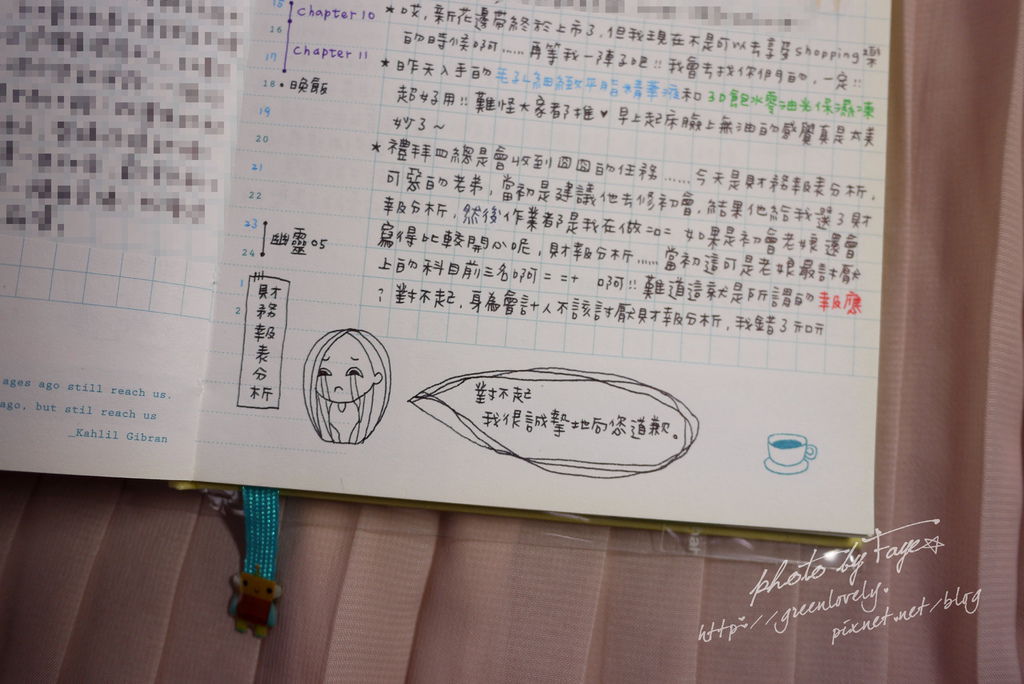 15
Chapter 10
16
Chapter 11
17
18 晚飯
19
20
21
22
23
幽靈05
24
1
2
財務報表分析
★哎,新花邊帶終於上市了,但我現在不是可以去享受shopping樂
的時候啊……再等我一陣子吧!!我會去找你們的,一定!!
★昨天入手的毛孔細緻平脂精華液和3D飽水零油光保濕凍
超好用!!難怪大家都推♥早上起床臉上無油的感覺真是太美
妙了~
★禮拜四總是會收到囧囧的任務……今天是財務報表分析,
可惡的老弟,當初是建議他去修初會,結果他給我選了財
報分析,然後作業都是我在做=口= 如果是初會老娘還會
寫得比較開心呢,財報分析……當初這可是老娘最討厭
上的科目前三名啊= =+ 啊!!難道這就是所謂的報應
?對不起,身為會計人不該討厭財報分析,我錯了
對不起
我很誠摯地向您道歉。
ages ago still reach us.
ago, but stil reach us
_Kahlil Gibran
photo by Faye☆
http://greenlovely.
pixnet.net/blog